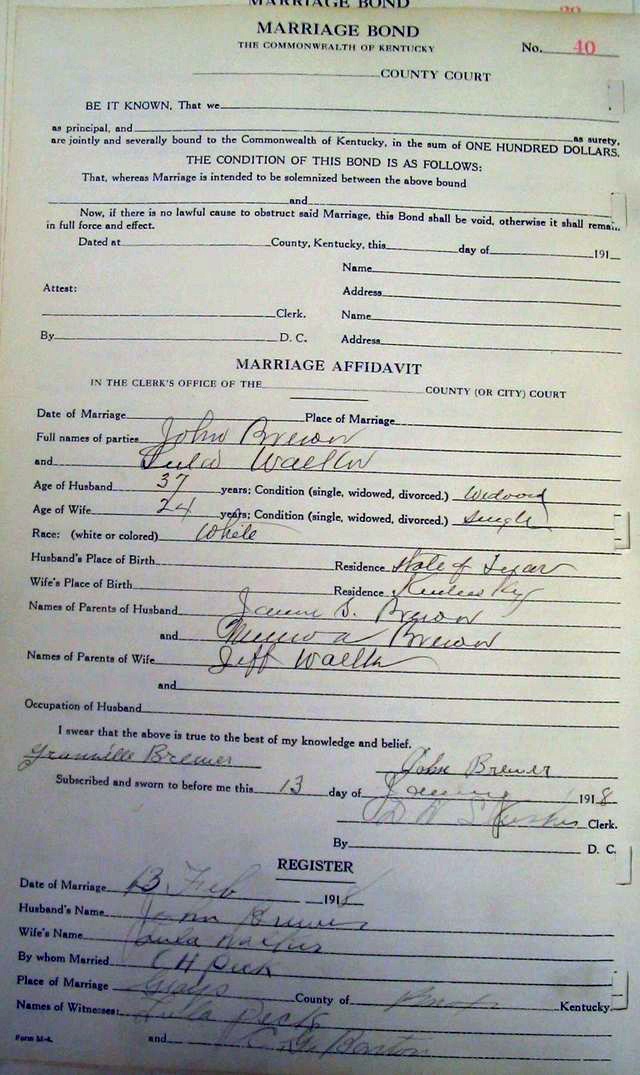 MARRIAGE BOND
MARRIAGE BOND
THE COMMONWEALTH OF KENTUCKY
No. 40
COUNTY COURT
BE IT KNOWN, That we
as principal, and as surety,
are jointly and severally bound to the Commonwealth of Kentucky, in the sum of ONE HUNDRED DOLLARS.
THE CONDITION OF THIS BOND IS AS FOLLOWS:
That, whereas Marriage is intended to be solemnized between the above bound
and
Now, if there is no lawful cause to obstruct said Marriage, this Bond shall be void, otherwise it shall remain
in full force and effect.
Dated at County, Kentucky, this day of 191
Name
Attest: Address
Clerk. Name
By D. C. Address
MARRIAGE AFFIDAVIT
IN THE CLERK'S OFFICE OF THE COUNTY (OR CITY) COURT
Date of Marriage Place of Marriage
Full names of parties John Brewer
and Lula Walker
Age of Husband 37 years; Condition (single, widowed, divorced.) Widowed
Age of Wife 24 years; Condition (single, widowed, divorced.) Single
Race: (white or colored) White
Husband's Place of Birth Residence State of Texas
Wife's Place of Birth Residence Ky
Names of Parents of Husband S. Brewer
and Brewer
Names of Parents of Wife Jeff Walker
and
Occupation of Husband
I swear that the above is true to the best of my knowledge and belief.
Grannille Brewer John Brewer
Subscribed and sworn to before me this 13 day of 1918
Clerk.
By D. C.
REGISTER
Date of Marriage 13 Feb 1918
Husband's Name John Brewer
Wife's Name Lula Walker
By whom Married C H Peck
Place of Marriage County of Kentucky.
Names of Witnesses: Lula Peck
Form M-4. and Barton